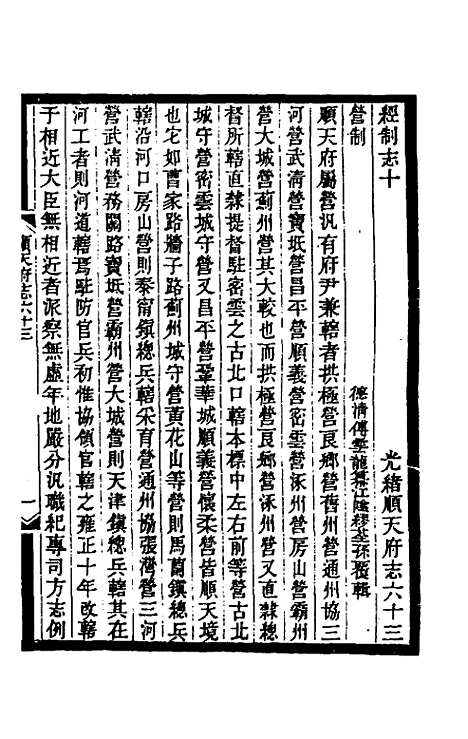 經制志十　光緒順天府志六十三
營制　德清傅雲龍纂江陰繆荃孫覆輯
順天府屬營汛有府尹兼轄者拱極營良鄉營舊州營通州協三
河營武清營寶坻營昌平營順義營密雲營涿州營房山營霸州
營大城營薊州營其大較也而拱極營良鄉營涿州營又直隸總
督所轄直隸提督駐密雲之古北口轄本標中左右前等營古北
城守營密雲城守營又昌平營鞏華城順義營懷柔營皆順天境
也它如曹家路牆子路薊州城守營黃花山等營則馬蘭鎮總兵
轄沿河口房山營則泰甯鎮總兵轄采育營通州協張灣營三河
營武清營務關路寶坻營霸州營大城營則天津鎮總兵轄其在
河工者則河道轄焉駐防官兵初惟協領官轄之雍正十年改轄
于相近大臣無相近者派察無虛年地嚴分汛職紀專司方志例
順天府志六十三
一